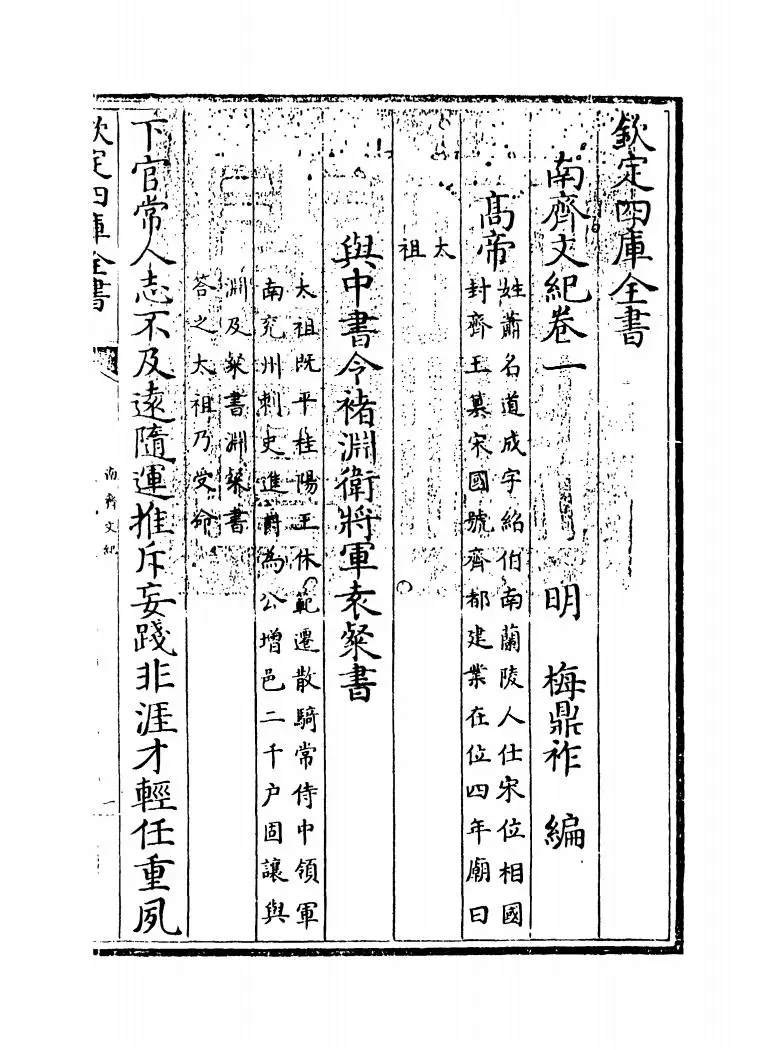 欽定四庫全書
南齊文紀卷一　明　梅鼎祚　編
高帝
姓蕭名道成字紹伯南蘭陵人仕宋位相國
封齊王纂宋國號齊都建業在位四年廟曰
太
祖
與中書令褚淵衛將軍袁粲書
太祖既平桂陽王休範遷散騎常侍中領軍
南兖州刺史進爵為公增邑二千户固讓與
淵及粲書淵粲書
答之太祖乃受命
下官常人志不及遠隨運推斥妄踐非涯才輕任重夙
欽定四庫全書
南齊文紀
一